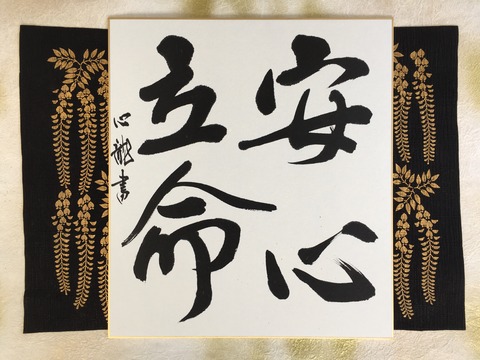 安心
立命
心龍書